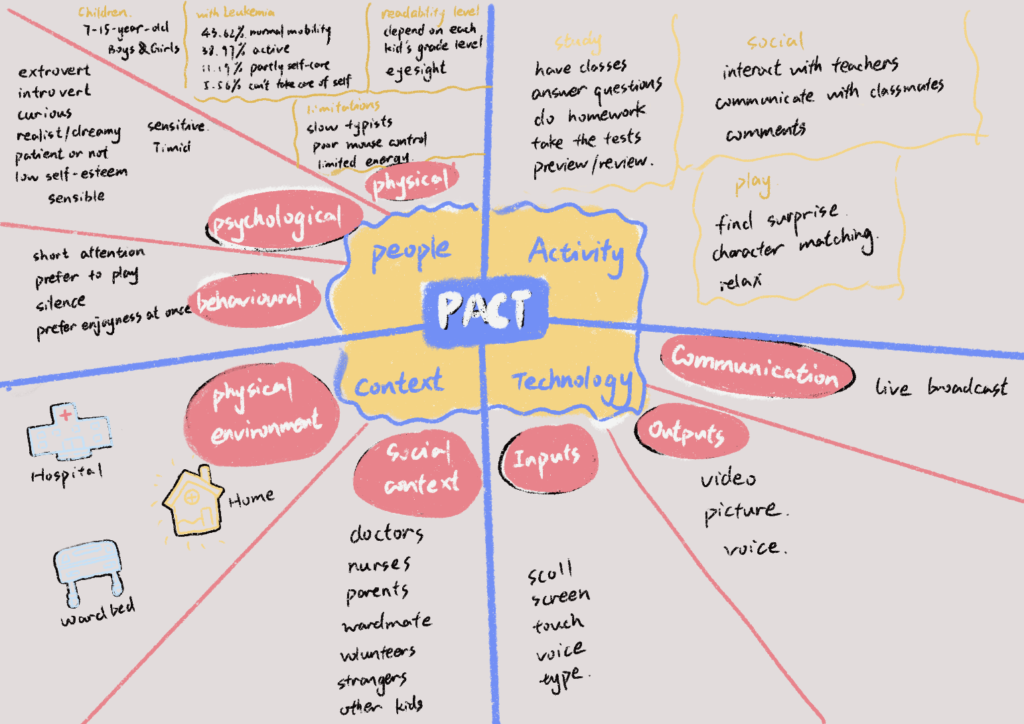 PACT
people
Children
7-15-year-old
Boys & Girls
with Leukemia
43.62% normal mobility
38.97% active
partly self-care
can't take care of self
readability level
depend on each
kid's grade level
eyesight
limitations
slow typists
poor mouse control
limited energy
physical
extrovert
introvert
curious
realist/dreamy
patient or not
low self-esteem
sensible
sensitive.
Timid
psychological
short attention
prefer to play
silence
prefer enjoyness at once
behavioural
Activity
study
have classes
answer questions
do homework
take the tests
preview/review.
social
interact with teachers
communicate with classmates
comments
play
find surprise.
character matching.
relax
Context
physical
environment
Hospital
Home
wardbed
social
context
doctors
nurses
parents
wardmate
volunteers
strangers
other kids
Technology
Inputs
scoll
screen
touch
voice
type.
Outputs
video
picture.
voice.
Communication
live broadcast